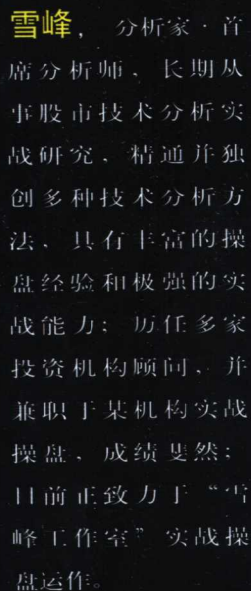 雪峰，分析家·首
席分析师，长期从
事股市技术分析实
战研究，精通并独
创多种技术分析方
法，具有丰富的操
盘经验和极强的实
战能力；历任多家
投资机构顾问，并
兼职于某机构实战
操盘，成绩斐然；
目前正致力于“雪
峰工作室”实战操
盘运作。